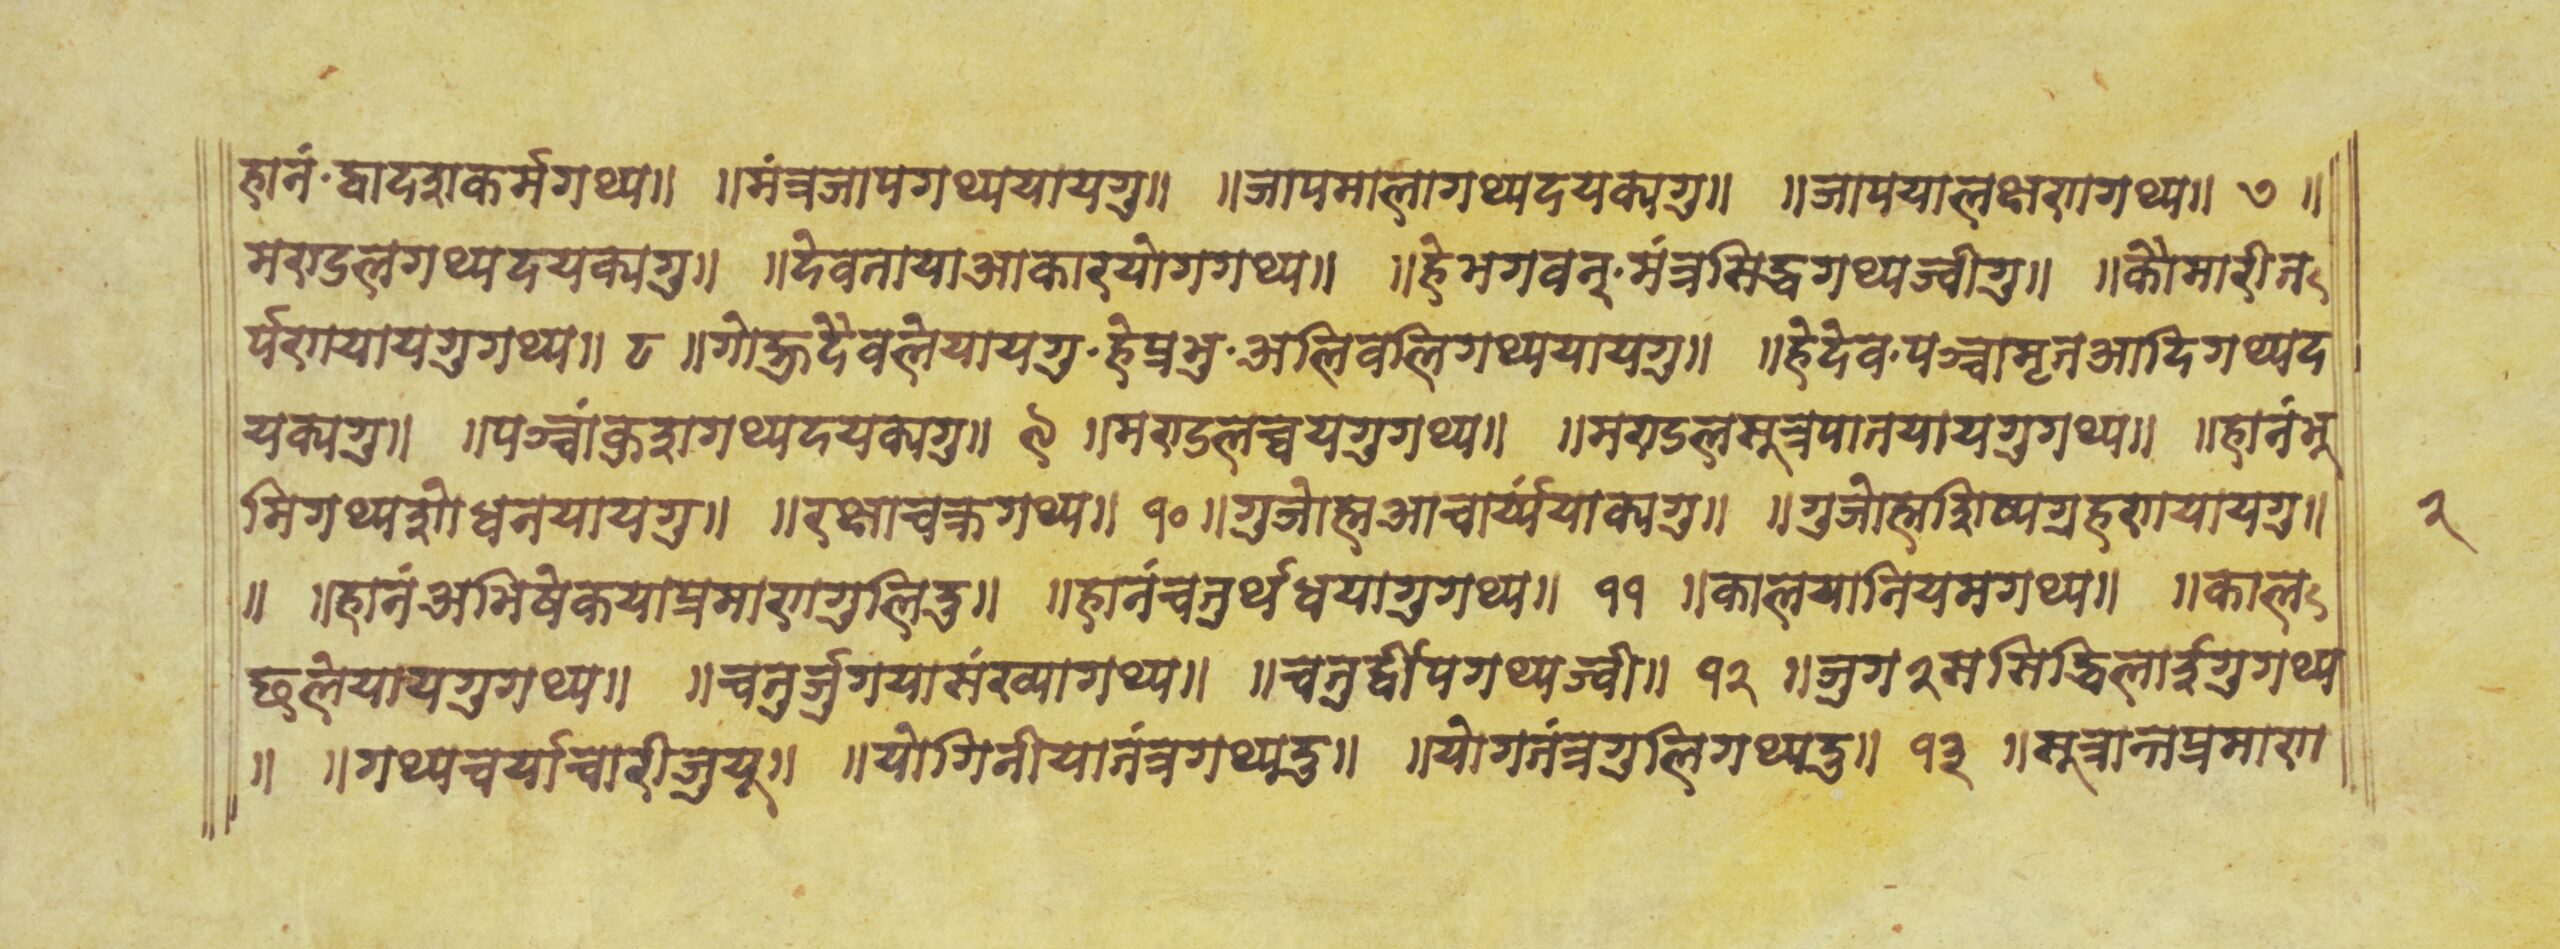 हानं·द्वादशकर्मगथ्य॥ ॥मंत्रजापगथ्ययायगु॥ ॥जापमालागथ्यदयक्यगु॥ ॥जापयालक्षणगथ्य॥ ७ ॥
मण्डलगथ्यदयक्यगु॥ ॥देवतायाआकारयोगगथ्य॥ ॥हेभगवन्·मंत्रसिद्धगथ्यज्वीगु॥ ॥कौमारीत
र्पणयायगुगथ्य॥ ८ ॥गोह्मदेवलेयायगु·हेप्रभु·अलिवलिगथ्ययायगु॥ ॥हेदेव·पञ्चामृतआदिगथ्यद
यक्यगु॥ ॥पञ्चांकुशगथ्यदयक्यगु॥ ९ ॥मण्डलच्वयगुगथ्य॥ ॥मण्डलसूत्रपातयायगुगथ्य॥ ॥हानंभू
मिगथ्यशोधनयायगु॥ ॥रक्षाचक्रगथ्य॥ १० ॥गुजोह्मआचार्य्ययाक्यगु॥ ॥गुजोह्मशिष्यग्रहणयायगु॥
॥ ॥हानंअभिषेकयाप्रमाणगुलिदु॥ ॥हानंचतुर्थधयागुगथ्य॥ ११ ॥कालयानियमगथ्य॥ ॥काल
छलेयायगुगथ्य॥ ॥चतुर्जुगयासंख्यागथ्य॥ ॥चतुर्द्वीपगथ्यज्वी॥ १२ ॥जुग२ससिद्धिलाईगुगथ्य
॥ ॥गथ्यचर्याचारीजुयू॥ ॥योगिनीयातंत्रगथ्यदु॥ ॥योगतंत्रगुलिगथ्यदु॥ १३ ॥सूत्रान्तप्रमाण
२